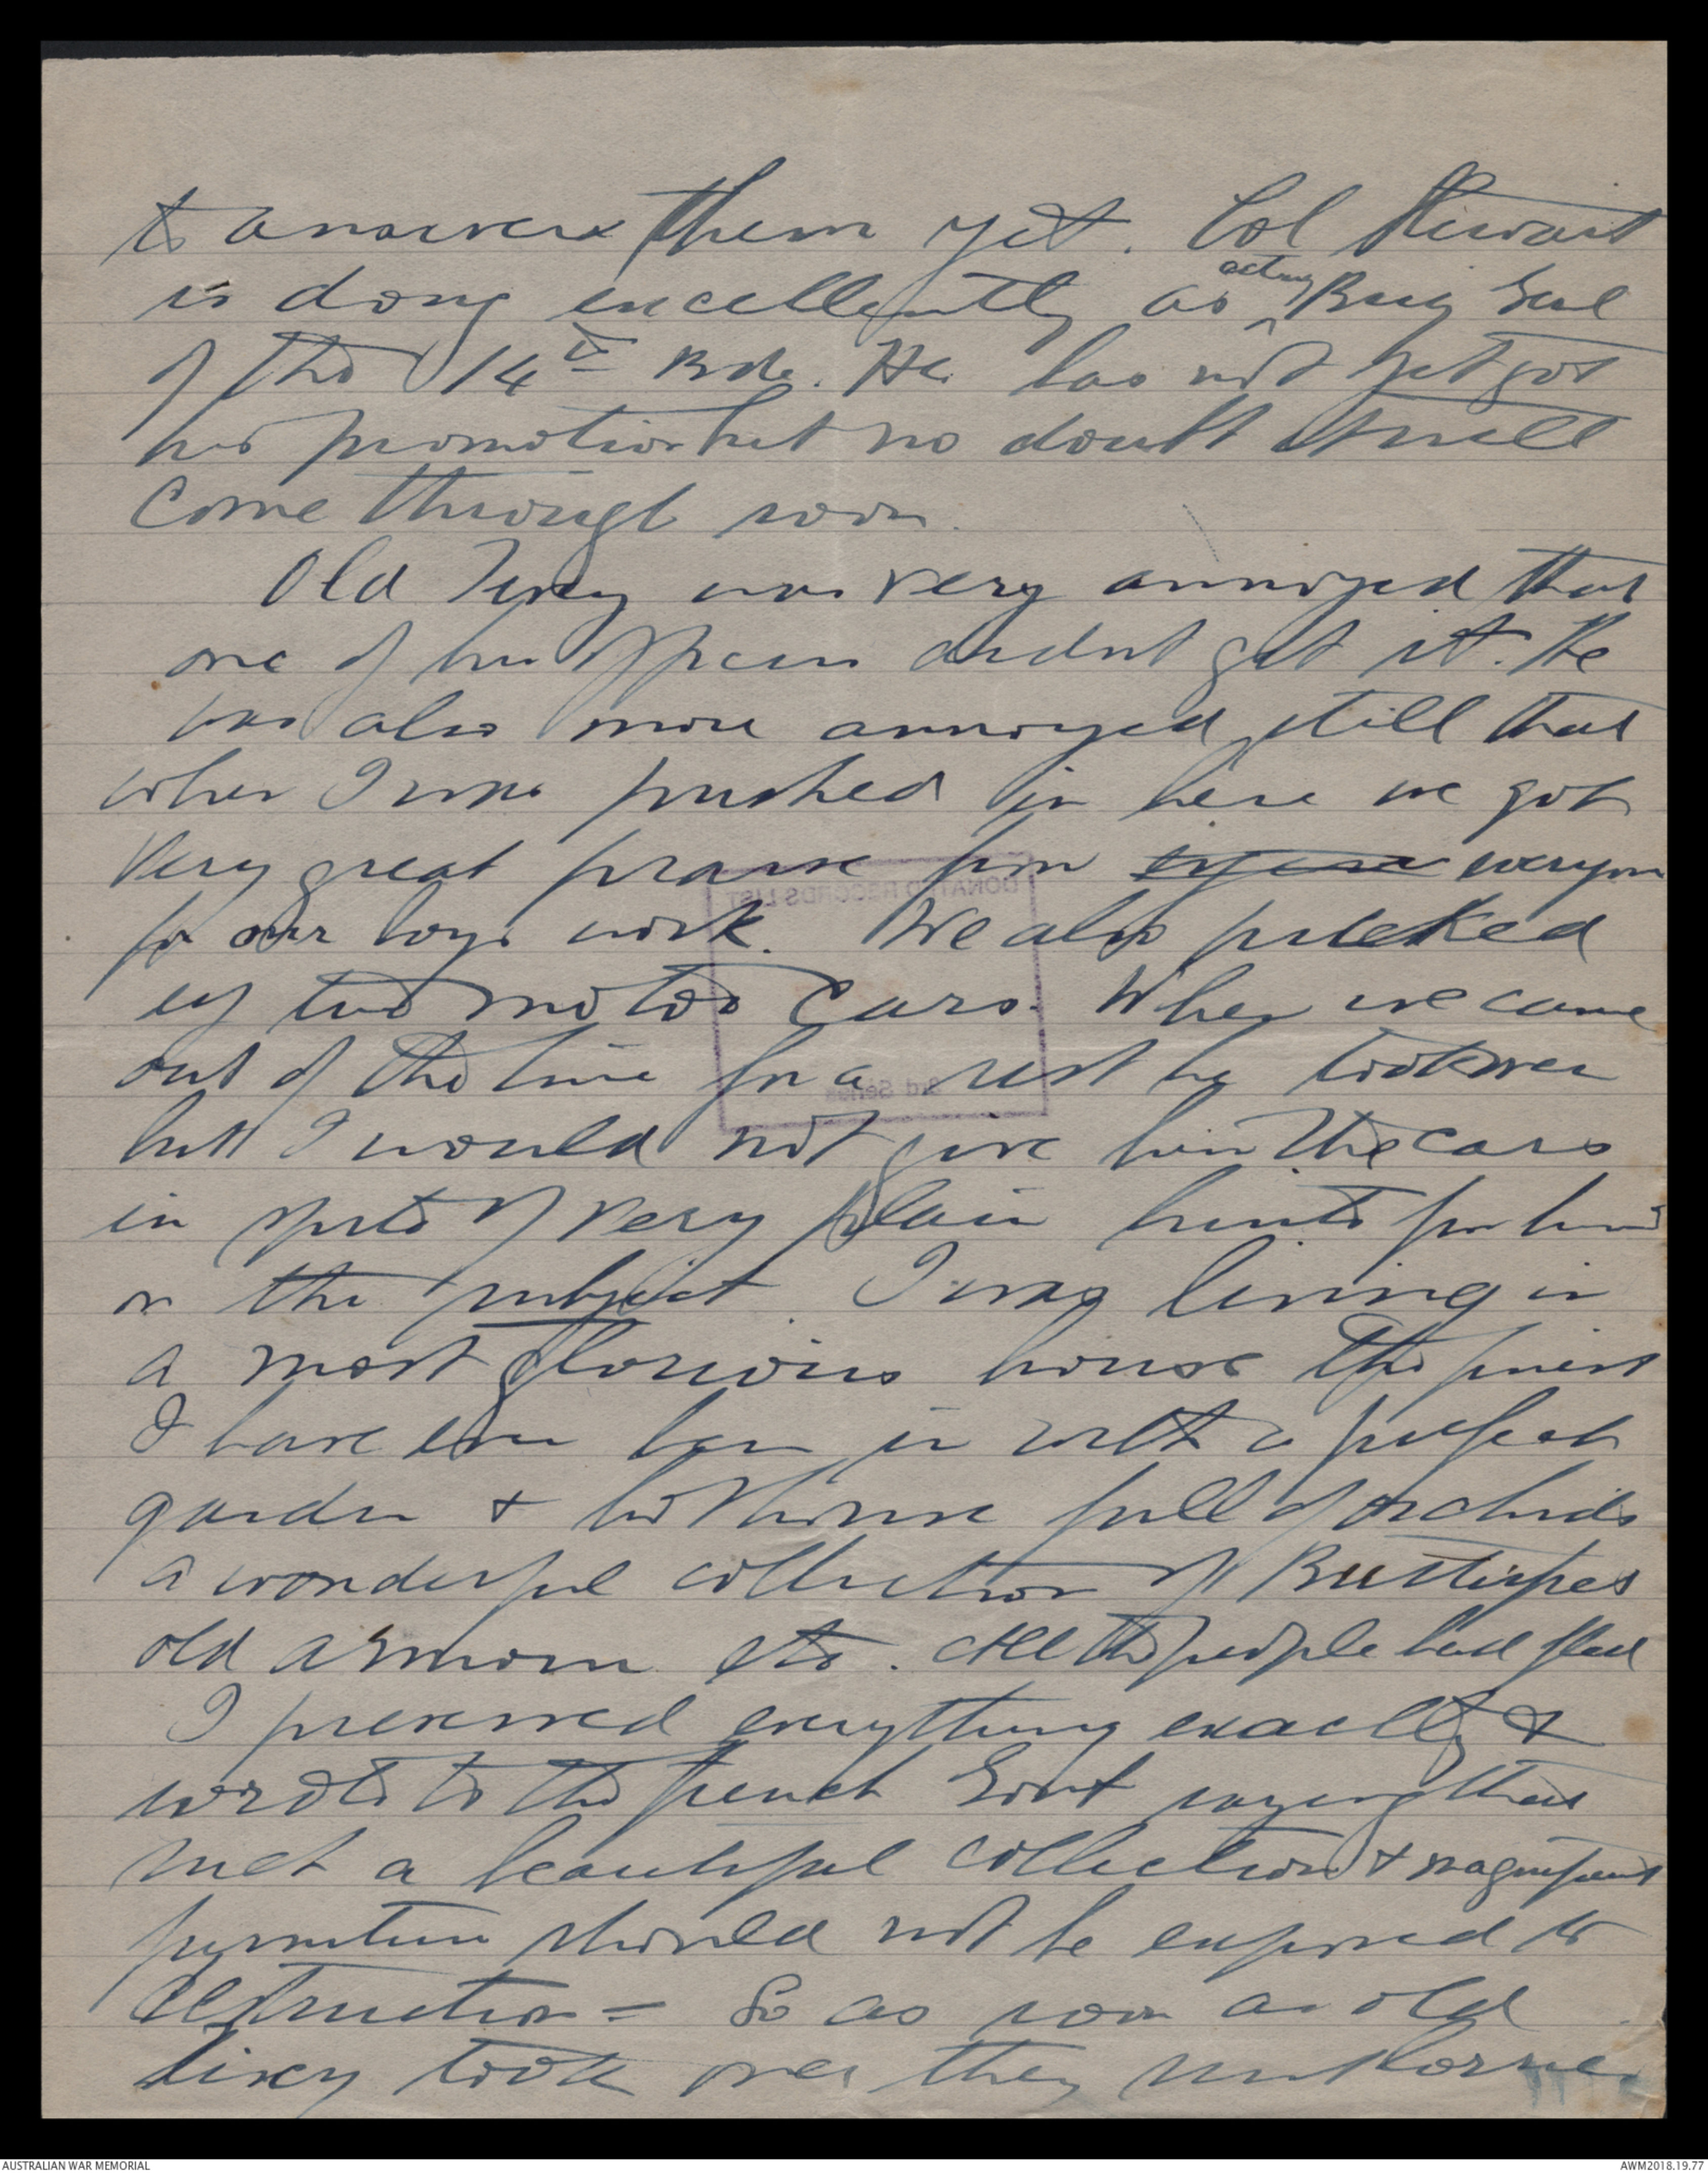 to answer them yet. Col Stewart
is doing excellently as acting Brig Genl
of the 14th Bde. He has not yet got
his promotion but no doubt it will
come through soon.
Old Tivey was very annoyed that
one of his officers didnt get it. He
was also more annoyed still that
when I was pushed in here we got
very great praise from everyone
for our boys work. We also picked
up two motor cars. When we came
out of the line for a rest he took over
but I would not give him the cars
in spite of very plain hints from him
on the subject. I was living in
a most glorious house the finest
I have ever been in with a perfect
garden & hot house full of orchids
a wonderful collection of Butterflies
old armour etc. All the people had fled
I preserved everything exactly &
wrote to the French Govt saying that
such a beautiful collection & magnificent
furniture should not be exposed to
destruction = So as soon as old
Tivey took over they
DONATED RECORDS LIST
3rd Series
AUSTRALIAN WAR MEMORIAL
AWM2018.19.77